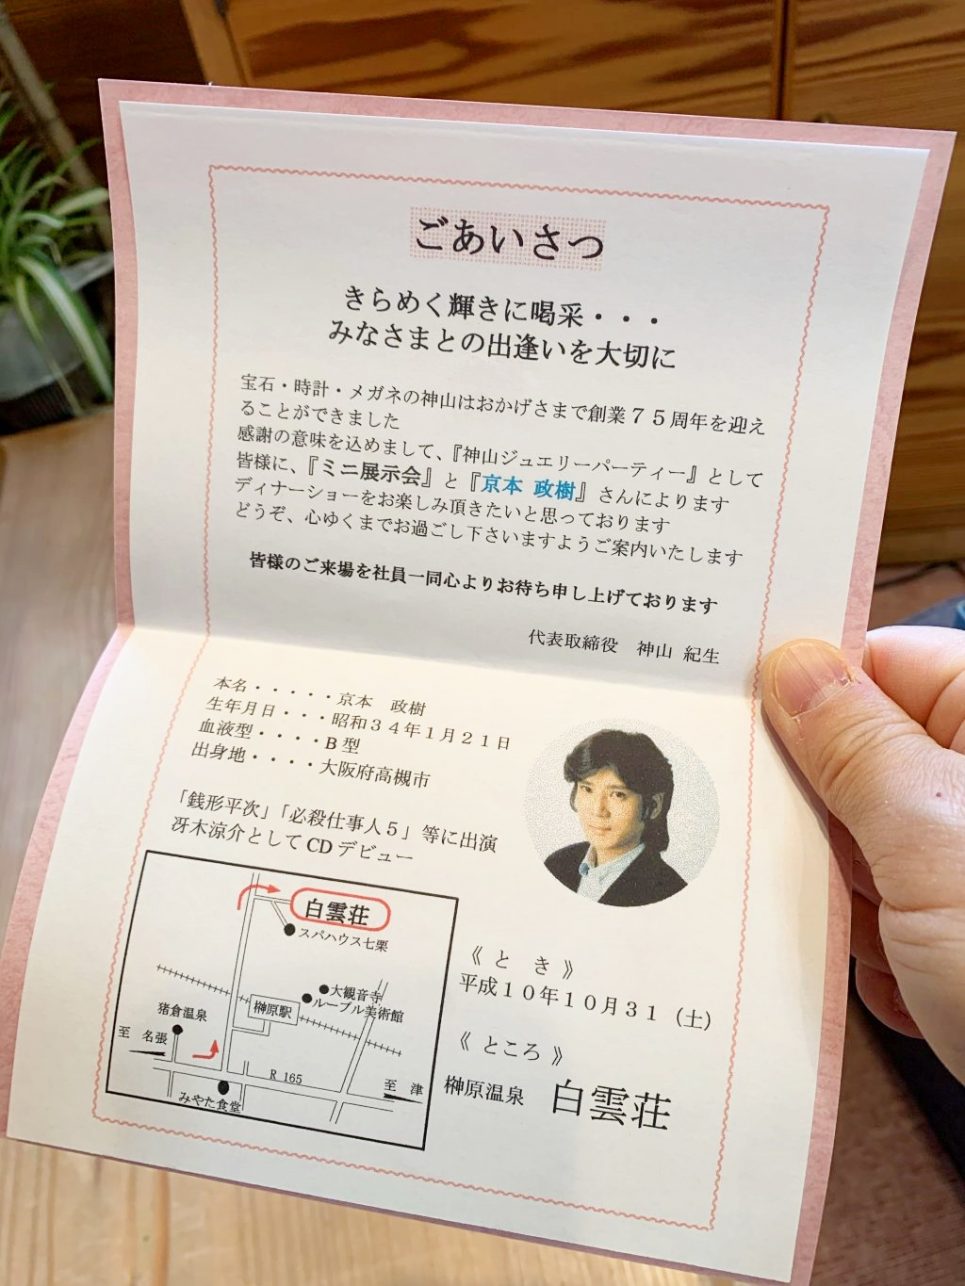 ごあいさつ
きらめく輝きに喝采・・・
みなさまとの出逢いを大切に
宝石・時計・メガネの神山はおかげさまで創業７５周年を迎え
ることができました
感謝の意味を込めまして、『神山ジュエリーパーティー』として
皆様に、『ミニ展示会』と『京本 政樹』さんによります
ディナーショーをお楽しみ頂きたいと思っております
どうぞ、心ゆくまでお過ごし下さいますようご案内いたします
皆様のご来場を社員一同心よりお待ち申し上げております
代表取締役　神山 紀生
本名・・・・・京本　政樹
生年月日・・・昭和３４年１月２１日
血液型・・・・Ｂ型
出身地・・・・大阪府高槻市
「銭形平次」「必殺仕事人５」等に出演
冴木涼介としてCDデビュー
白雲荘
スパハウス七栗
大観音寺
ルーブル美術館
榊原駅
猪倉温泉
至　名張
R 165
至　津
みやた食堂
《 と　き 》
平成１０年１０月３１（土）
《 ところ 》
榊原温泉　白雲荘